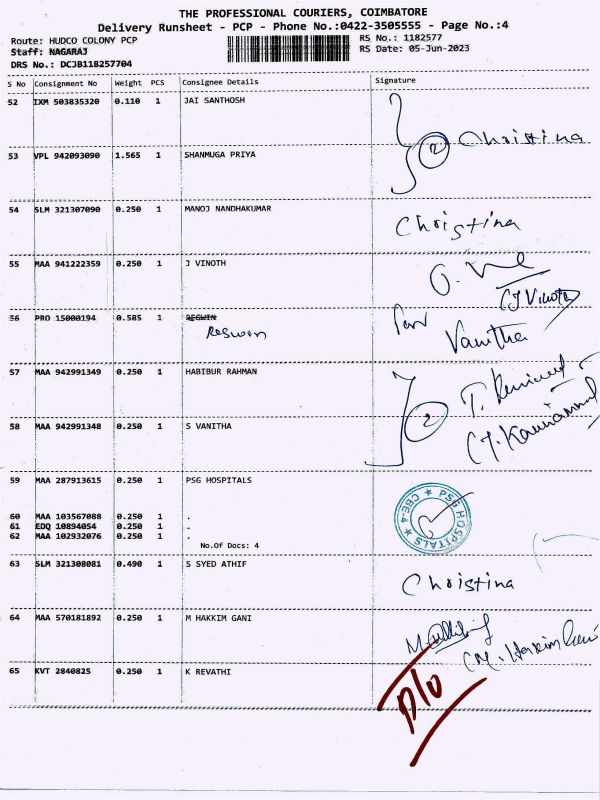 THE PROFESSIONAL COURIERS, COIMBATORE
Delivery Runsheet - PCP - Phone No.:0422-3505555 - Page No.:4
Route: HUDCO COLONY PCP
RS No.: 1182577
Staff: NAGARAJ
RS Date: 05-Jun-2023
DRS No.: DCJB118257704
S No Consignment No Weight PCS Consignee Details Signature
52 IXM 503835320 0.110 1 JAI SANTHOSH
2 Christina
53 VPL 942093090 1.565 1 SHANMUGA PRIYA
54 SLM 321307090 0.250 1 MANOJ NANDHAKUMAR
Christina
55 MAA 941222359 0.250 1 J VINOTH
(J Vinoth)
56 PRO 15000194 0.585 1 REGWIN
Regwin
Vanitha
57 MAA 942991349 0.250 1 HABIBUR RAHMAN
2
58 MAA 942991348 0.250 1 S VANITHA
59 MAA 287913615 0.250 1 PSG HOSPITALS
PSG HOSPITALS ★ CBE-4 ★
60 MAA 103567088 0.250 1 .
61 EDQ 10894054 0.250 1 .
62 MAA 102932076 0.250 1 .
No.Of Docs: 4
63 SLM 321308081 0.490 1 S SYED ATHIF
Christina
64 MAA 570181892 0.250 1 M HAKKIM GANI
(M. Hakkim Gani
65 KVT 2840825 0.250 1 K REVATHI
D/O